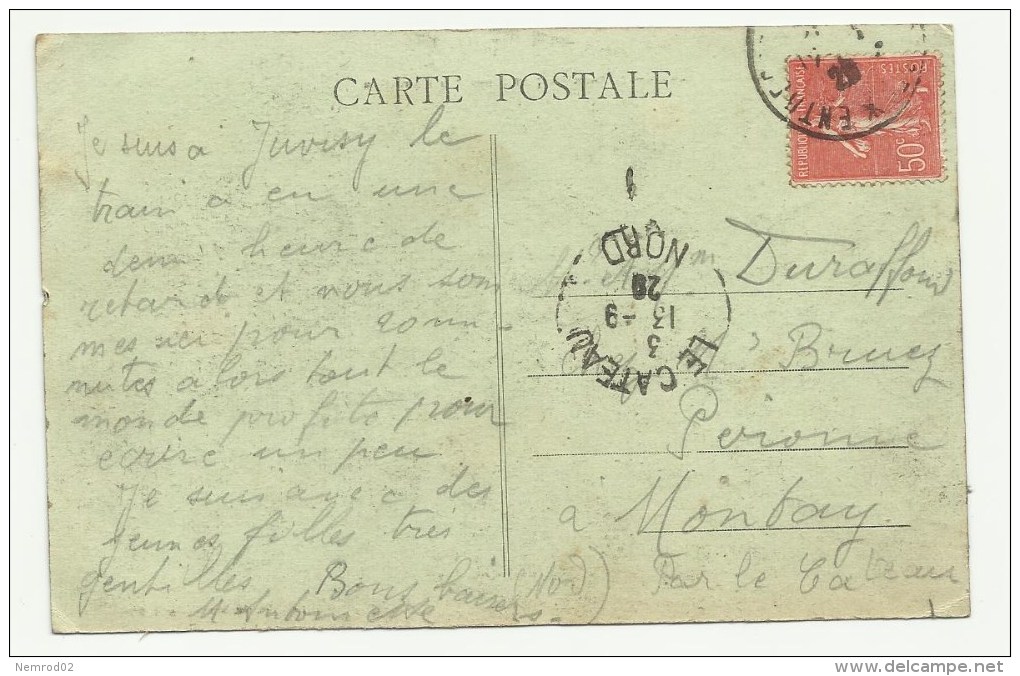 CARTE POSTALE
Je suis à Juvisy le
train a eu une
demi heure de
retard et nous som
mes ici pour 20 mi-
nutes alors tout le
monde profite pour
ecrire un peu
Je suis avec des
jeunes filles très
gentilles Bons baisers
M Antoinette
REPUBLIQUE FRANÇAISE
POSTES
50c
LE CATEAU
NORD
13 -9
3
28
1
Duraffour
Bruez
Peronne
à Montay
Par le Cateau
(Nord)
Nemrod02
www.delcampe.net